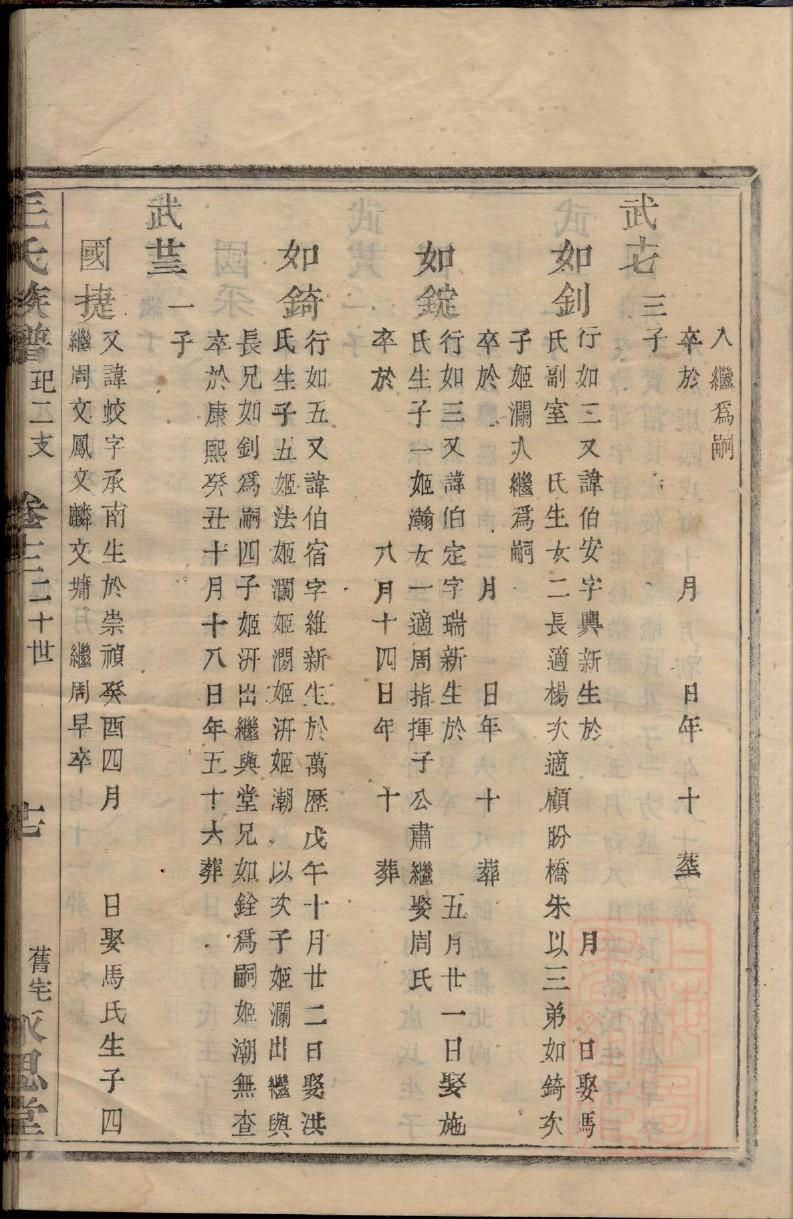 入繼爲嗣
卒於 月 日年 十 葬
武屯 三子
如釗 行如三又諱伯安字興新生於 月 日娶馬
氏副室 氏生女二長適楊次適顧盼橋朱以三弟如錡次
子姬瀾入繼爲嗣
卒於 月 日年 十 葬
如錠 行如三又諱伯定字瑞新生於 五月廿一日娶施
氏生子一姬瀚女一適周指揮子公肅繼娶周氏
卒於 八月十四日年 十 葬
如錡 行如五又諱伯宿字維新生於萬歷戊午十月廿二日娶洪
氏生子五姬法姬瀾姬澗姬汧姬潮以次子姬瀾出繼與
長兄如釗爲嗣四子姬汧出繼與堂兄如銓爲嗣姬潮無查
卒於康熙癸丑十月十八日年五十六葬
武 一子
國捷 又諱蛟字承南生於崇禎癸酉四月 日娶馬氏生子四
繼周文鳳文麟文墉 繼周早卒
王氏族譜 玘二支 卷十三 二十世 十七 舊宅 永思堂